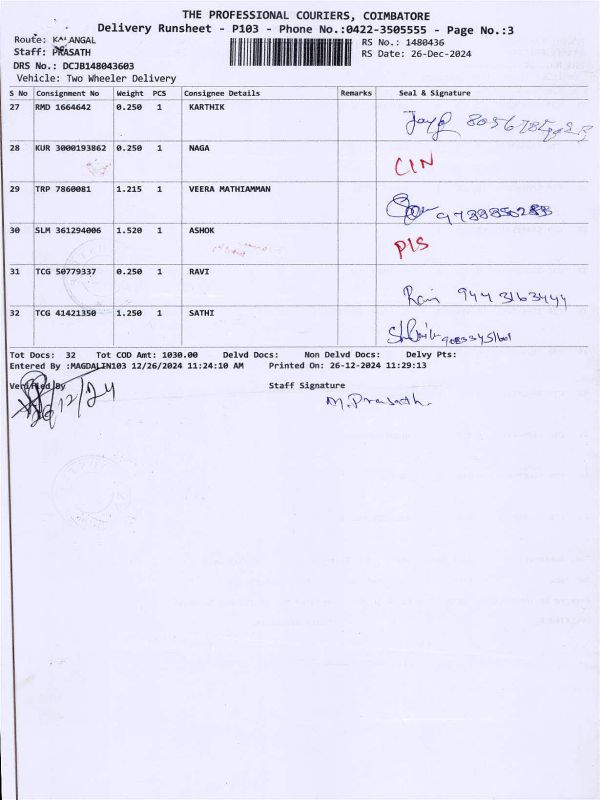 THE PROFESSIONAL COURIERS, COIMBATORE
Delivery Runsheet - P103 - Phone No.:0422-3505555 - Page No.:3
Route: KALANGAL
RS No.: 1480436
Staff: PRASATH
RS Date: 26-Dec-2024
DRS No.: DCJB148043603
Vehicle: Two Wheeler Delivery
S No Consignment No Weight PCS Consignee Details Remarks Seal & Signature
27 RMD 1664642 0.250 1 KARTHIK
28 KUR 3000193862 0.250 1 NAGA CIN
29 TRP 7860081 1.215 1 VEERA MATHIAMMAN
30 SLM 361294006 1.520 1 ASHOK PIS
31 TCG 50779337 0.250 1 RAVI
Ravi 9443163444
32 TCG 41421350 1.250 1 SATHI
Tot Docs: 32 Tot COD Amt: 1030.00 Delvd Docs: Non Delvd Docs: Delvy Pts:
Entered By :MAGDALIN103 12/26/2024 11:24:10 AM Printed On: 26-12-2024 11:29:13
Verified By Staff Signature
26/12/24 M.Prasath.